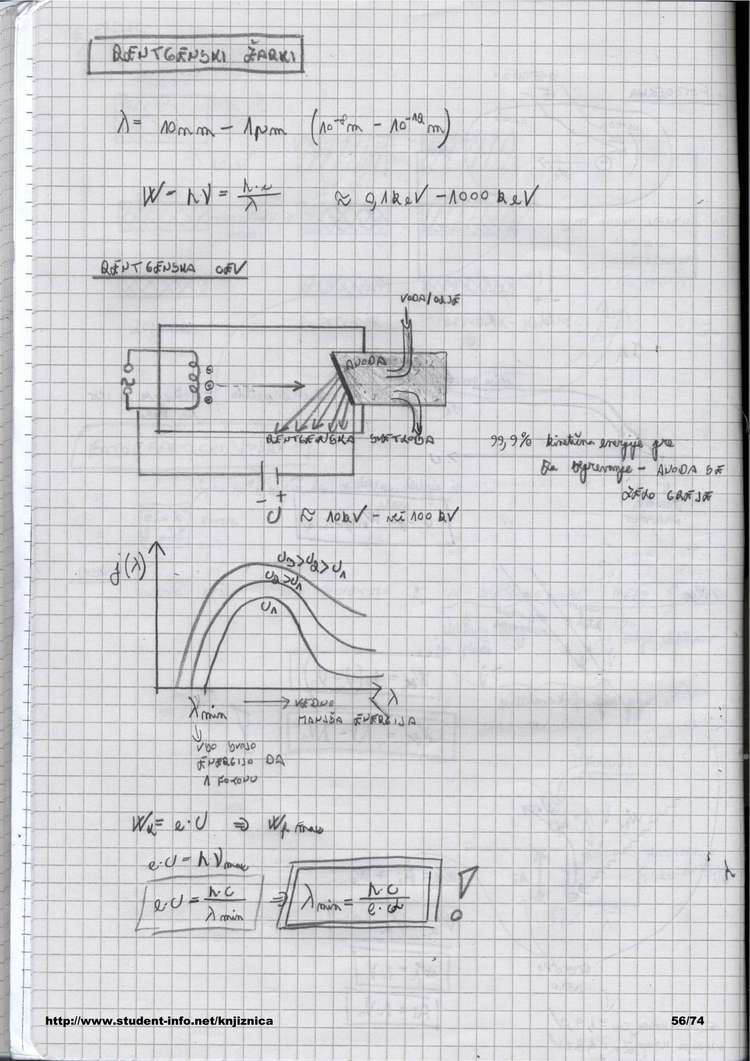 RENTGENSKI ŽARKI
λ = 10nm - 1pm (10⁻⁸m - 10⁻¹²m)
W = hν = h·c/λ ≈ 0,1keV - 1000 keV
RENTGENSKA CEV
VODA/OLJE
ANODA
RENTGENSKA SVETLOBA
99,9% kinetične energije gre
za ogrevanje - ANODA SE
ZELO GREJE
- +
U ≈ 10kV - več 100 kV
j(λ)
U₃>U₂>U₁
U₂>U₁
U₁
λmin
λ
→ VEDNO
MANJŠA ENERGIJA
VSO SVOJO
ENERGIJO DA
1 FOTONU
Wk = e·U ⇒ Wf max
e·U = hνmax
e·U = h·c/λmin ⇒ λmin = h·c/e·U !
http://www.student-info.net/knjiznica
56/74